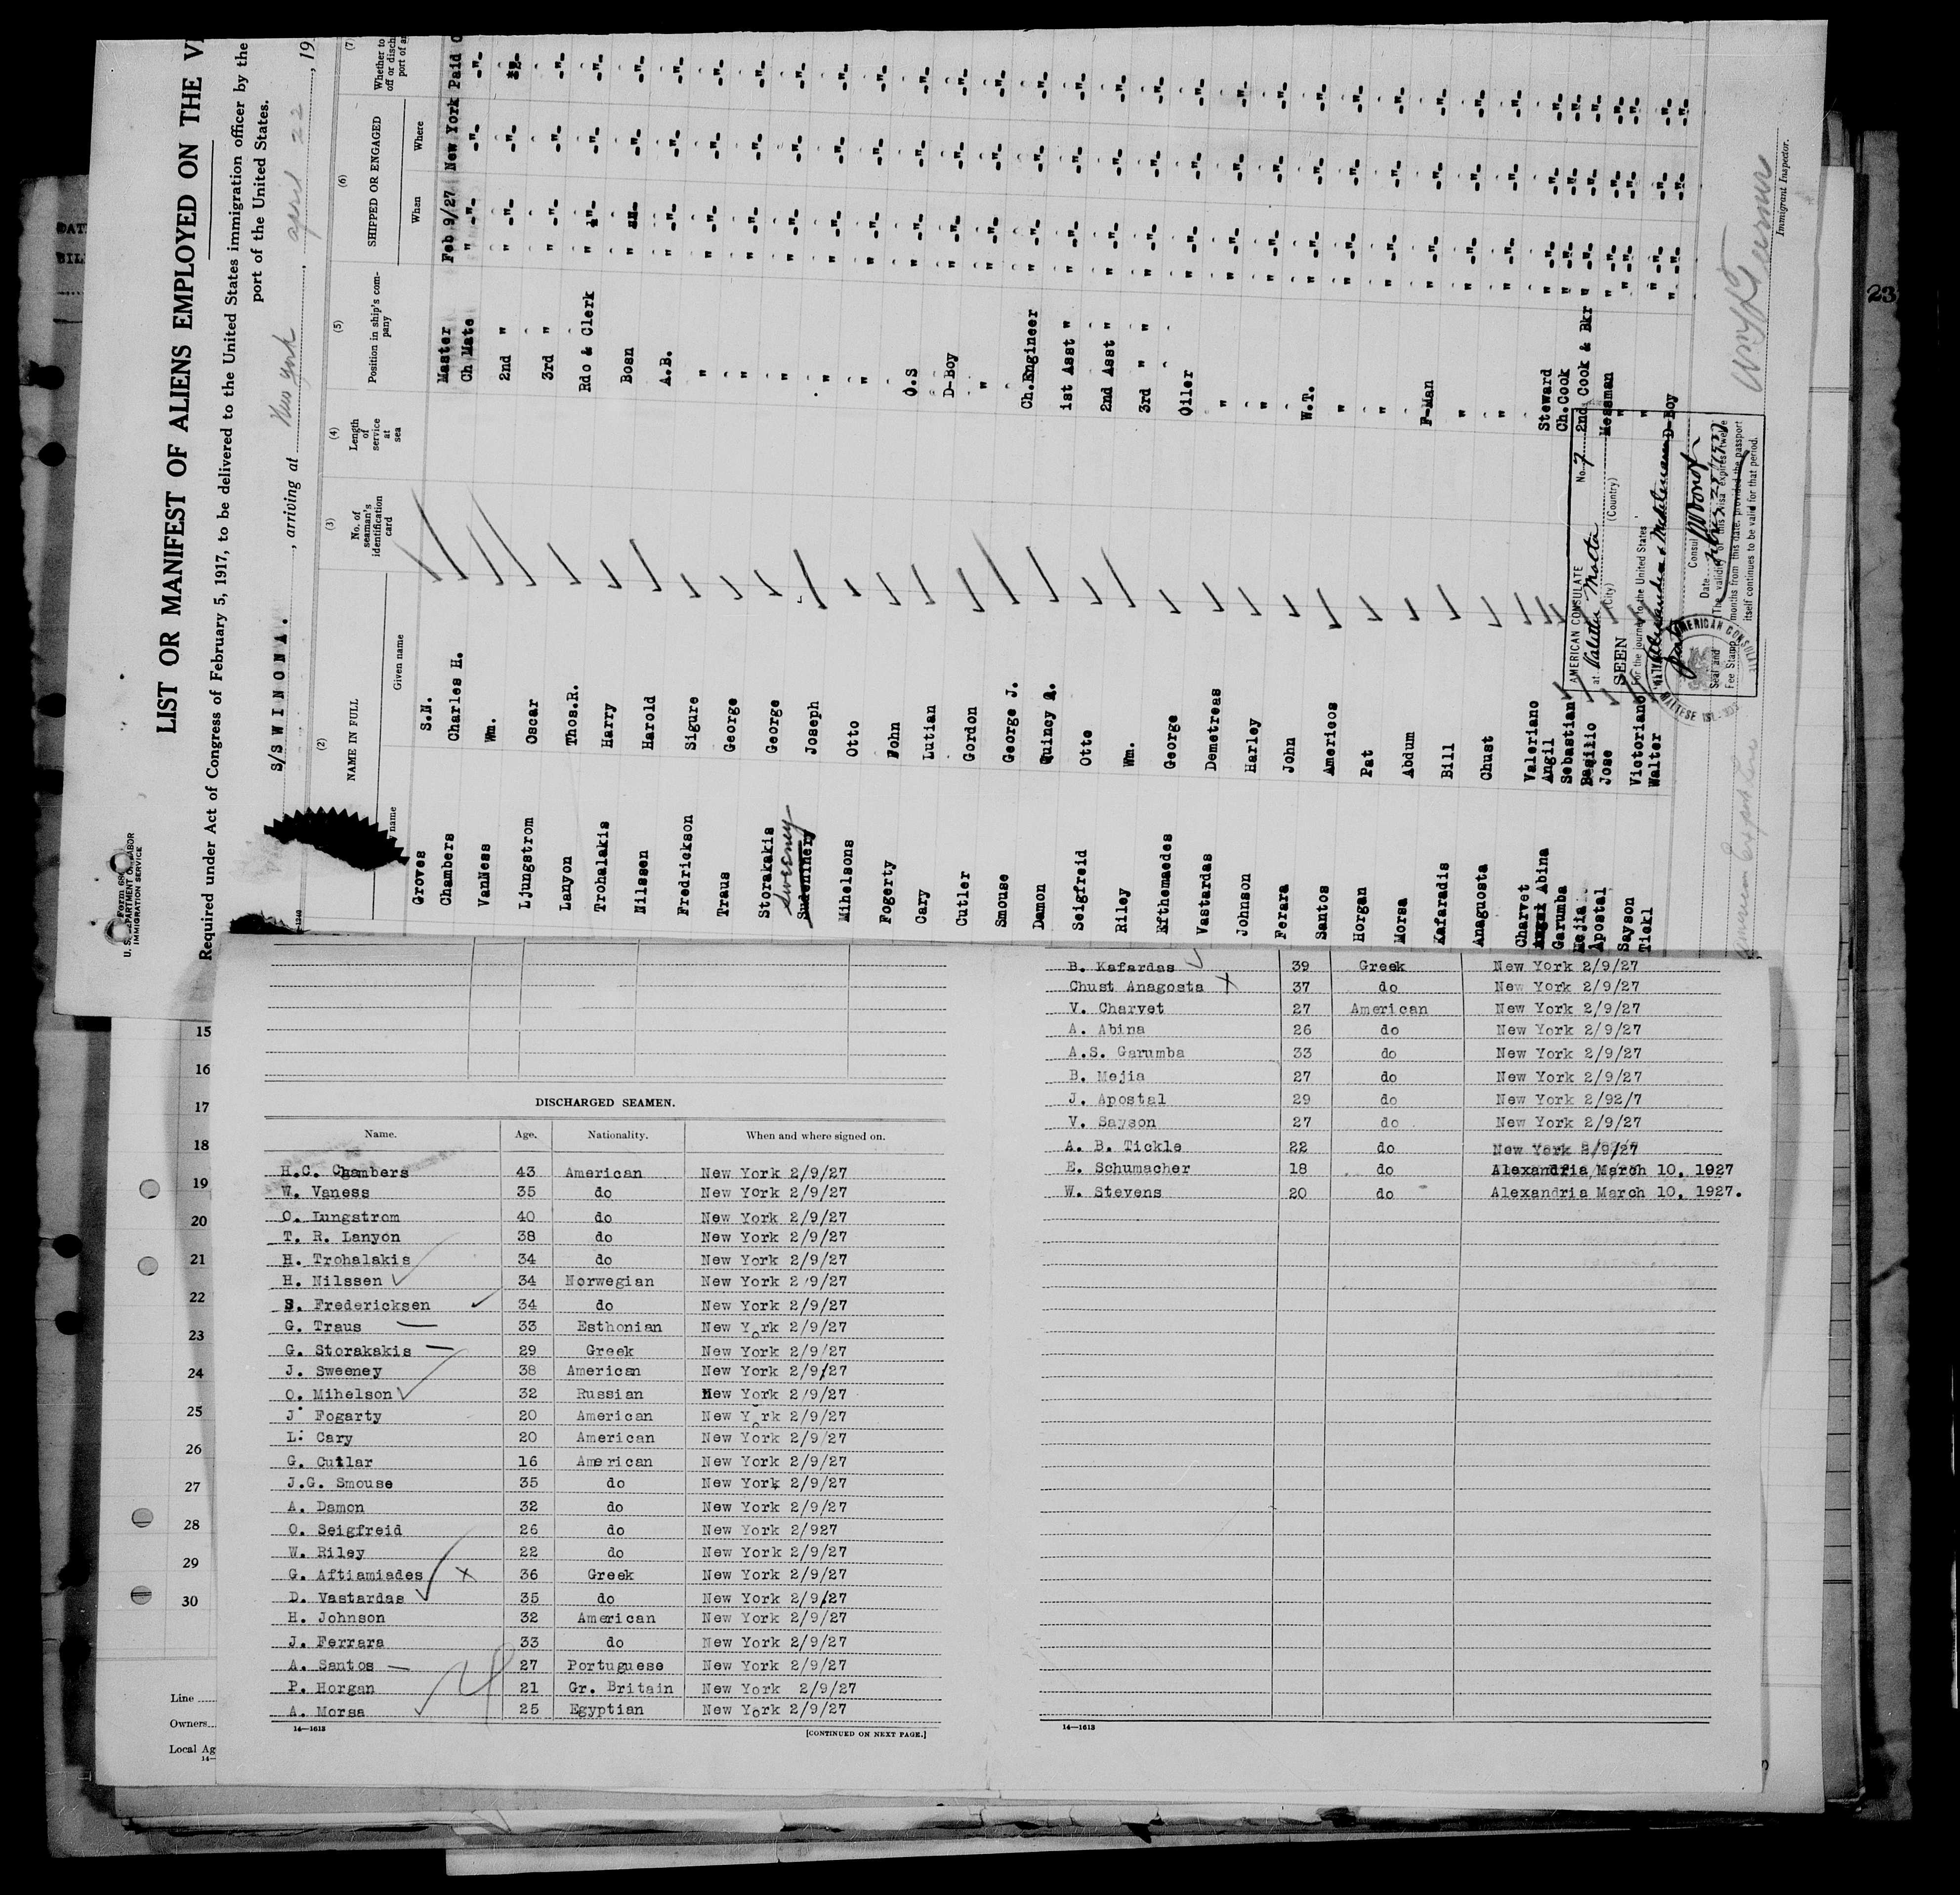 Form 680
U. S. DEPARTMENT OF LABOR
IMMIGRATION SERVICE
LIST OR MANIFEST OF ALIENS EMPLOYED ON THE
Required under Act of Congress of February 5, 1917, to be delivered to the United States immigration officer by the
port of the United States.
S/S WINONA. , arriving at New York , april 22 , 19
(2) (3) (4) (5) (6) (7)
NAME IN FULL
No. of seaman's identification card
Length of service at sea
Position in ship's company
SHIPPED OR ENGAGED
Whether to
off or disch
port of ar
name Given name When Where
Groves S.N. Master Feb 9/27 New York Paid O
Chambers Charles H. Ch Mate " -"- -"- -"-
VanNess Wm. 2nd " " -"- -"-
Ljungstrom Oscar 3rd " " -"- -"- -"-
Lanyon Thos.R. Rdo & Clerk " -"- -"-
Trohalakis Harry Bosn " -"- -"-
Nilssen Harold A.B. " -"- -"- -"-
Fredrickson Sigure " " -"- -"- -"-
Traus George " " -"- -"- -"-
Storakakis George " " -"- -"- -"-
Sweeney Joseph " " -"- -"- -"-
Mihelsons Otto " " -"- -"- -"-
Fogerty John " -"- -"- -"-
Cary Lutian O.S " -"- -"- -"-
Cutler Gordon D-Boy " -"- -"- -"-
Smouse George J. " " -"- -"- -"-
Damon Quincy A. Ch.Engineer " -"- -"- -"-
Seigfreid Otto 1st Asst " " -"- -"- -"-
Riley Wm. 2nd Asst " " -"- -"- -"-
Efthemaedes George 3rd " " " -"- -"- -"-
Vastardas Demetreas Oiler " -"- -"- -"-
Johnson Harley " " -"- -"- -"-
Ferara John " " -"- -"- -"-
Santos Americos W.T. " -"- -"- -"-
Horgan Pat " " -"- -"- -"-
Morsa Abdum " " -"- -"- -"-
Kafaradis Bill F-Man " -"- -"- -"-
Anaguosta Chust " " -"- -"- -"-
Charvet Valeriano Steward " -"- -"- -"-
Abina Angil Ch.Cook " -"- -"- -"-
Garumba Sebastian 2nd Cook & Bkr " -"- -"- -"-
Mejia Basilio Messman " -"- -"- -"-
Apostal Jose " " -"- -"- -"-
Sayson Victoriano " " -"- -"- -"-
Tickl Walter D-Boy " -"- -"- -"-
AMERICAN CONSULATE
at Valletta Malta No. 7
(City) (Country)
SEEN
For the journey to the United States
via Alexandria &
Consul
Date
The validity of this visa expires twelve
months from this date, provided the passport
itself continues to be valid for that period.
Seal and
Fee Stamp
AMERICAN CONSULATE
MALTESE ISL
American Export Line
Immigrant Inspector.
23
15
16
17
18
19
20
21
22
23
24
25
26
27
28
29
30
Line
Owners
Local Ag
14—
DISCHARGED SEAMEN.
Name. Age. Nationality. When and where signed on.
H.C. Chambers 43 American New York 2/9/27
W. Vaness 35 do New York 2/9/27
O. Lungstrom 40 do New York 2/9/27
T. R. Lanyon 38 do New York 2/9/27
H. Trohalakis 34 do New York 2/9/27
H. Nilssen 34 Norwegian New York 2/9/27
S. Fredericksen 34 do New York 2/9/27
G. Traus 33 Esthonian New York 2/9/27
G. Storakakis 29 Greek New York 2/9/27
J. Sweeney 38 American New York 2/9/27
O. Mihelson 32 Russian New York 2/9/27
J. Fogarty 20 American New York 2/9/27
L. Cary 20 American New York 2/9/27
G. Cutlar 16 American New York 2/9/27
J.G. Smouse 35 do New York 2/9/27
A. Damon 32 do New York 2/9/27
O. Seigfreid 26 do New York 2/927
W. Riley 22 do New York 2/9/27
G. Aftiamiades 36 Greek New York 2/9/27
D. Vastardas 35 do New York 2/9/27
H. Johnson 32 American New York 2/9/27
J. Ferrara 33 do New York 2/9/27
A. Santos 27 Portuguese New York 2/9/27
P. Horgan 21 Gr. Britain New York 2/9/27
A. Morsa 25 Egyptian New York 2/9/27
14—1613
[CONTINUED ON NEXT PAGE.]
B. Kafardas 39 Greek New York 2/9/27
Chust Anagosta 37 do New York 2/9/27
V. Charvet 27 American New York 2/9/27
A. Abina 26 do New York 2/9/27
A.S. Garumba 33 do New York 2/9/27
B. Mejia 27 do New York 2/9/27
J. Apostal 29 do New York 2/92/7
V. Sayson 27 do New York 2/9/27
A. B. Tickle 22 do New York 2/9/27
E. Schumacher 18 do Alexandria March 10, 1927
W. Stevens 20 do Alexandria March 10, 1927.
14—1613